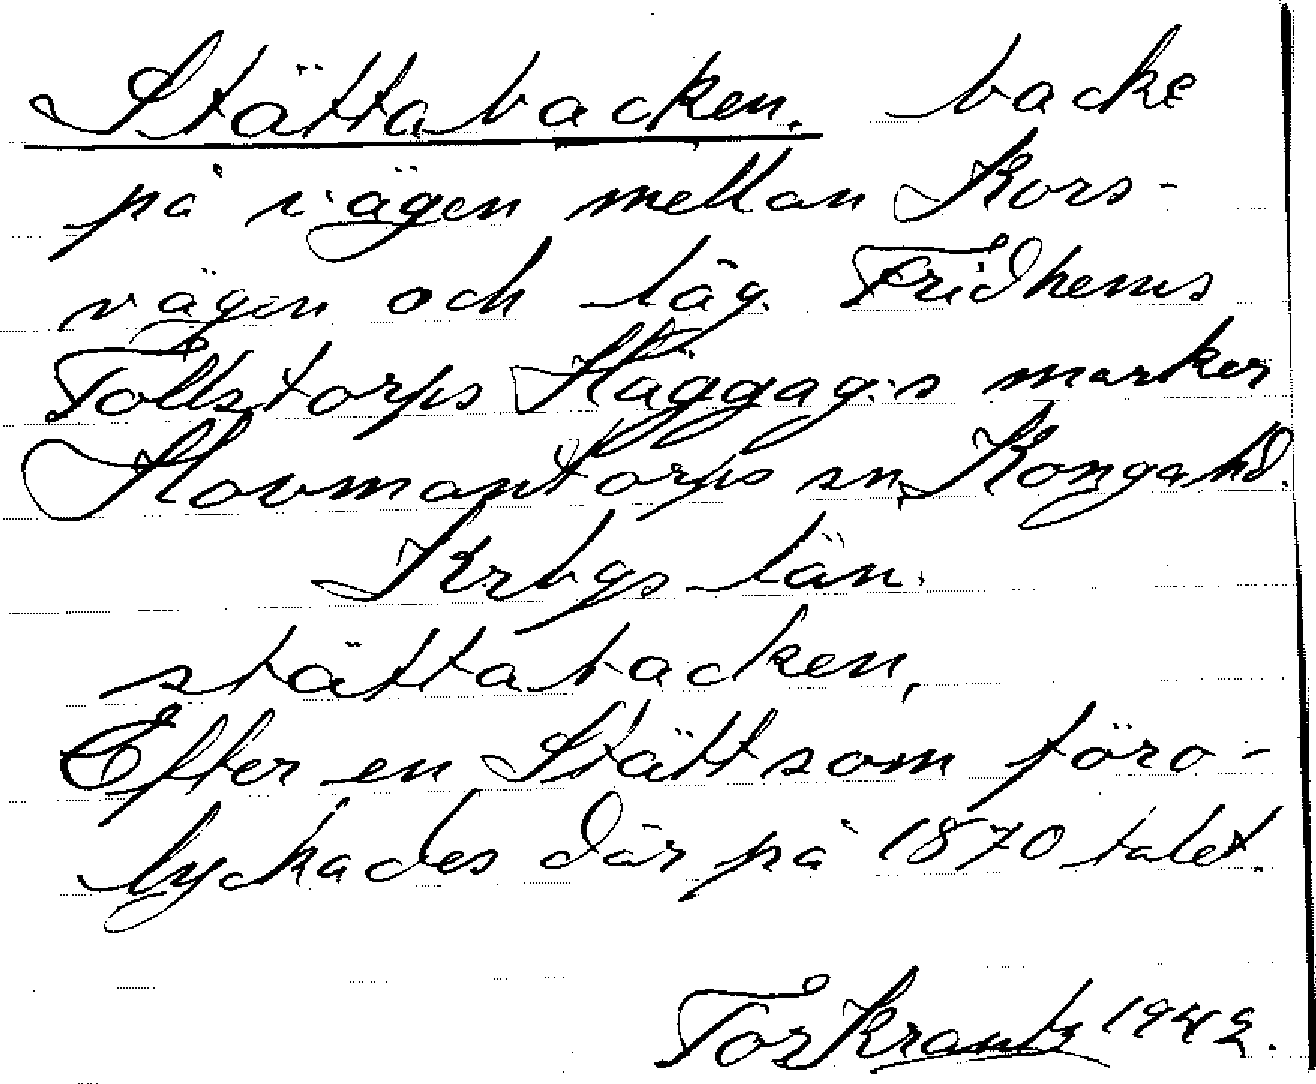 Stättabacken. backe
på vägen mellan Kors-
vägen och läg. Fridhems
Tollstorps Häggag:s marker
Hovmantorps sn, Konga hd.
Krbgs län.
stättabacken,
Efter en Stätt som föro-
lyckades där på 1870 talet.
Tor Krantz 1942.